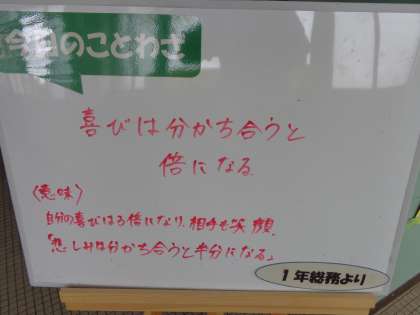 今日のことわざ
喜びは分かち合うと
倍になる
〈意味〉
自分の喜びはる倍になり、相手も笑顔。
「悲しみは分かち合うと半分になる」
1年総務より